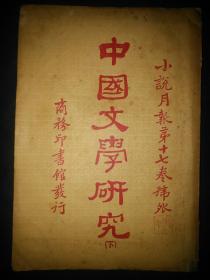 小說月報第十七卷號外
中國文學研究
(下)
商務印書館發行